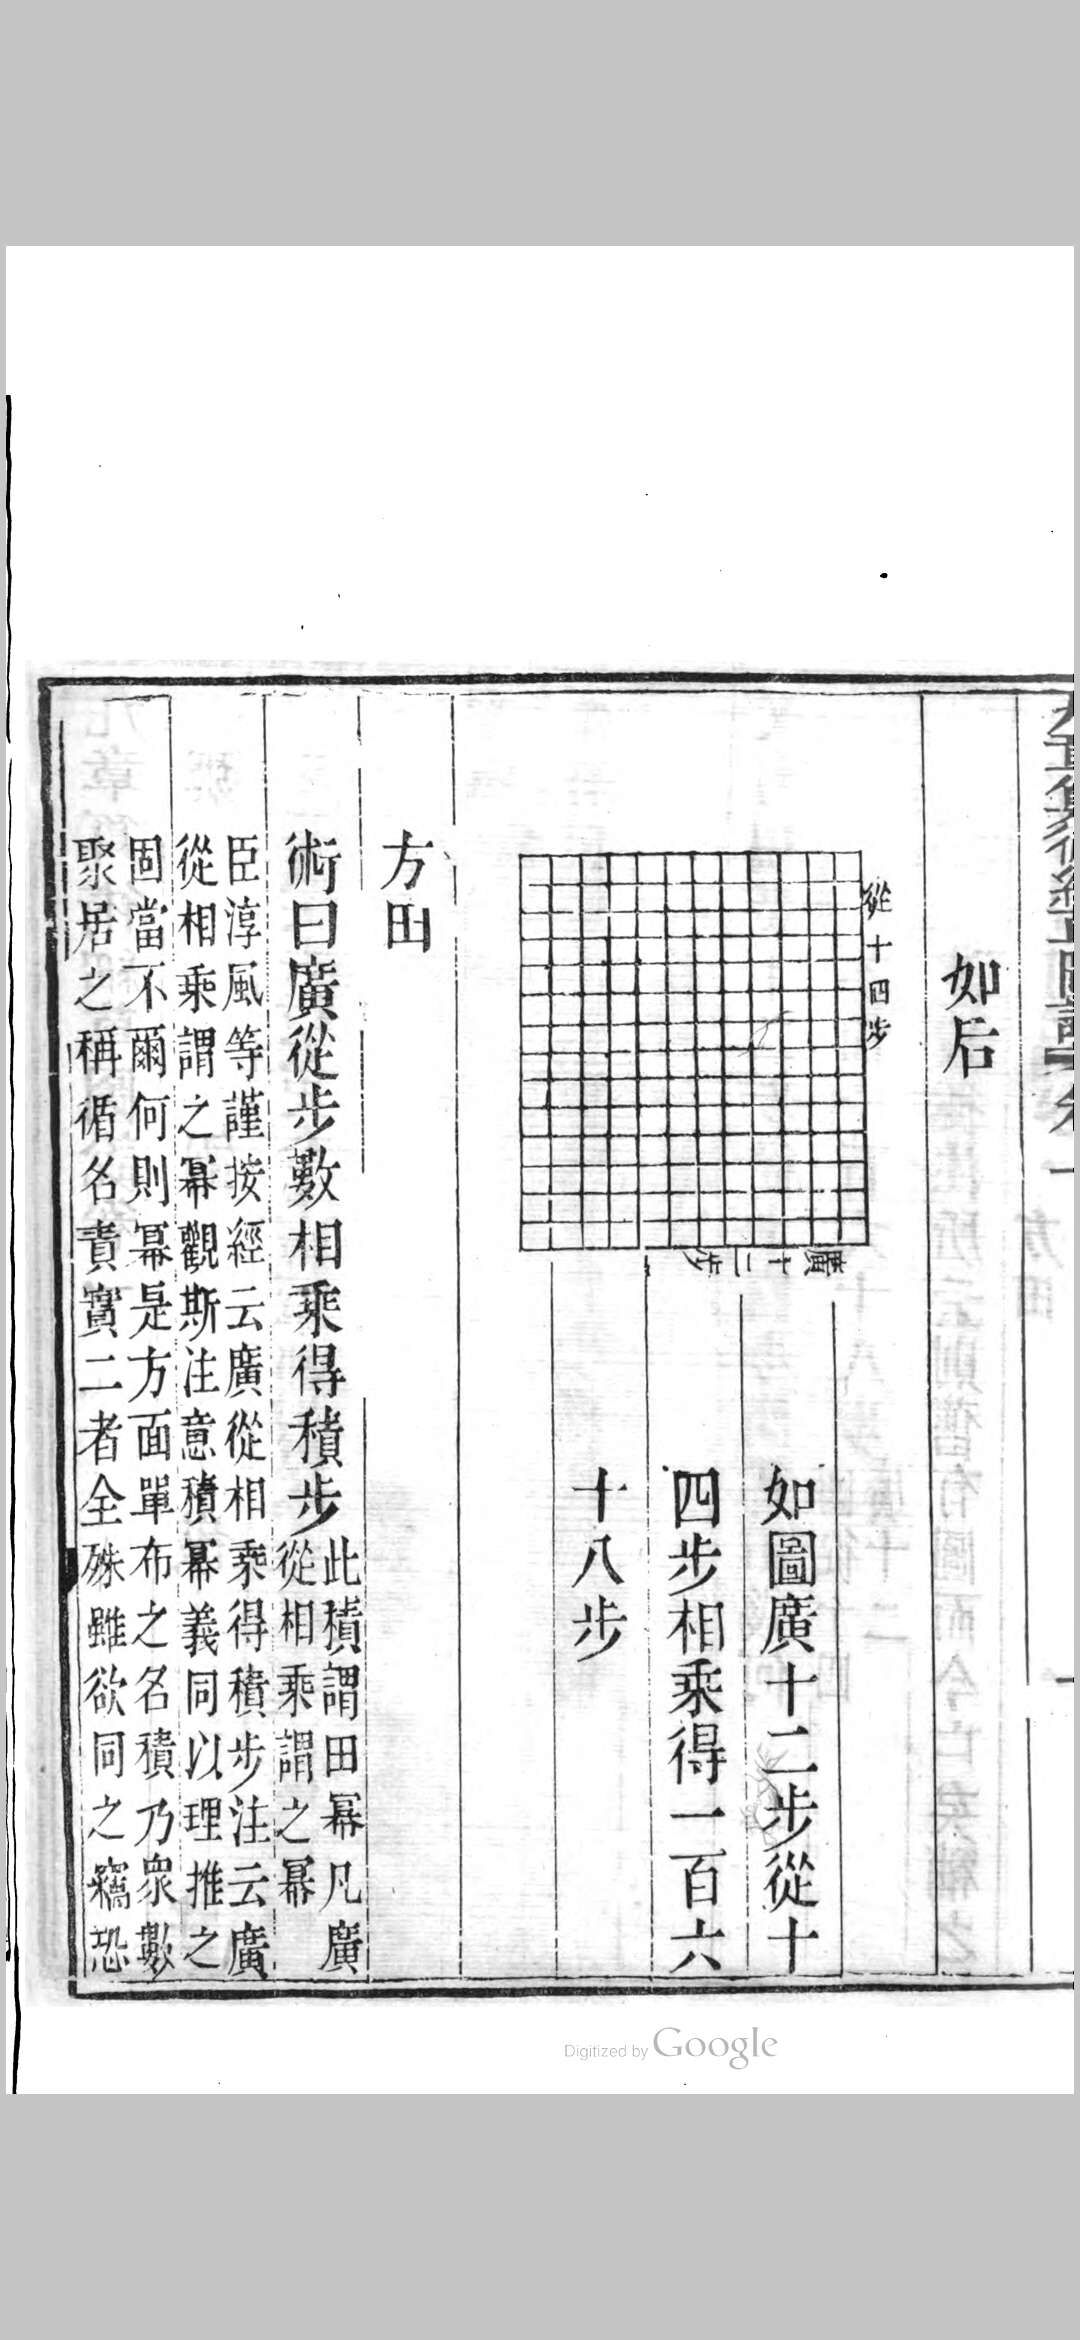 如后
從十四步
廣十二步
如圖廣十二步從十
四步相乘得一百六
十八步
方田
術曰廣從步數相乘得積步
此積謂田冪凡廣
從相乘謂之冪
臣淳風等謹按經云廣從相乘得積步注云廣
從相乘謂之冪觀斯注意積冪義同以理推之
固當不爾何則冪是方面單布之名積乃眾數
聚居之稱循名責實二者全殊雖欲同之竊恐
Digitized by Google